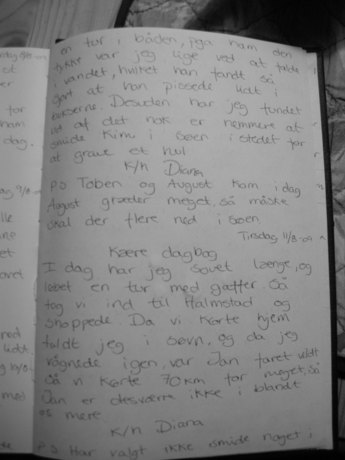 en tur i båden, pga ham den
tykke var jeg lige ved at falde
i vandet, hvilket han fandt så
sjovt at han pissede lidt i
bukserne. Desuden har jeg fundet
ud af det nok er nemmere at
smide Kim i søen i stedet for
at grave et hul
K/h Diana
PS Toben og August kom i dag
August græder meget, så måske
skal der flere ned i søen.
Tirsdag 11/8-09
Kære dagbog
I dag har jeg sovet længe, og
løbet en tur med gæffer. Så
tog vi ind til Halmstad og
shoppede. Da vi kørte hjem
faldt jeg i søvn, og da jeg
vågnede igen, var Jan faret vildt
så vi kørte 70 km for meget, så
Jan er desværre ikke i blandt
os mere.
K/h Diana
PS Har valgt ikke smide noget i